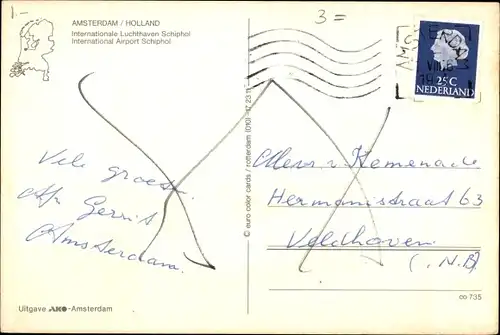 1.-
3=
AMSTERDAM / HOLLAND
Internationale Luchthaven Schiphol
International Airport Schiphol
AMSTERDAM
VIII
25C
NEDERLAND
Vele groeten
Gerrit
Amsterdam.
© euro color cards / rotterdam (010)
v. Hemenade
Hermanistraat 63
Veldhoven
(N.B)
Uitgave AKO-Amsterdam
co 735